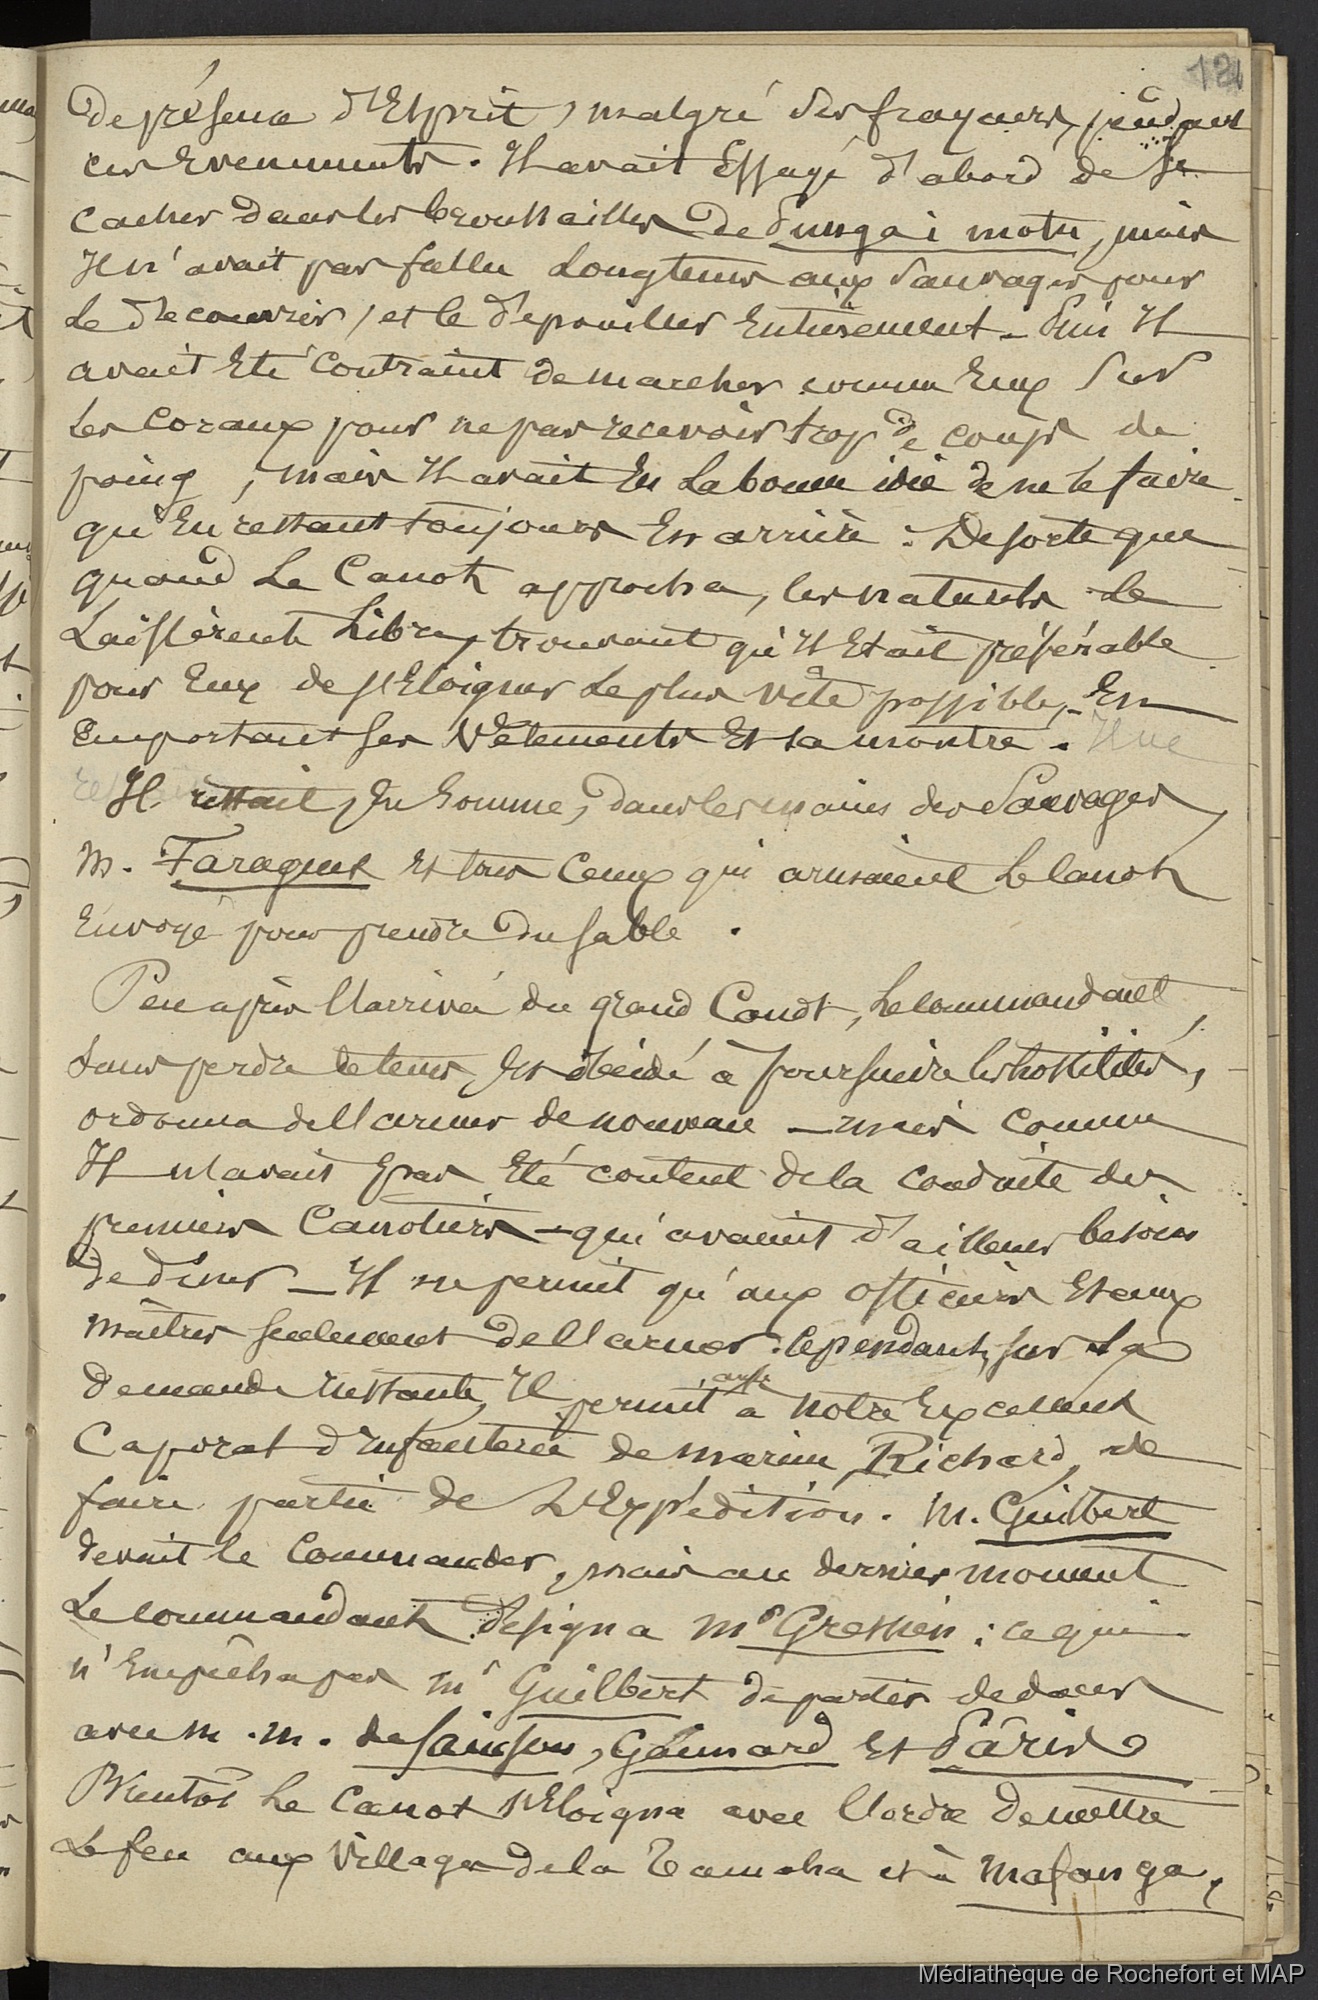 121
De présence d'Esprit, malgré ses frayeurs, pendant
ces Evenements. Il avait Essayé d'abord de se
cacher dans les broussailles de Pangaï motu, mais
Il n'avait pas fallu Longtems aux Sauvages pour
Le découvrir, et le dépouiller Entièrement. Puis Il
avait Eté Contraint de marcher comme Eux Sur
Les Coraux pour ne pas recevoir trop de coups de
poing, mais Il avait Eu La bonne idée de ne le faire
qu'En restant toujours En arrière : De sorte que
quand Le Canot approcha, les naturels Le
Laissèrent Libre, trouvant qu'Il Etait préférable
pour Eux de s'Eloigner Le plus vite possible, En
Emportant ses Vêtements Et sa montre. Il ne
Il restait, En Somme, dans les mains des Sauvages
M. Faraguet Et tous Ceux qui armaient Le Canot
Envoyé pour prendre du Sable.
Peu après l'arrivée du grand Canot, Le Commandant,
sans perdre de tems, Et décidé à poursuivre les hostilités,
ordonna de l'armer de nouveau – mais Comme
Il n'avait pas Eté content de la conduite des
premiers Canotiers – qui avaient d'ailleurs besoin
de dîner – Il ne permit qu'aux officiers Et aux
maîtres seulement de l'armer. Cependant, sur La
demande instante, Il permit aussi à notre Excellent
Caporal d'Infanterie de marine, Richard, de
faire partie de L'Expédition. M. Guilbert
devait le Commander, mais au dernier moment
Le Commandant désigna Mr Gressien : ce qui
n'Empêcha pas Mr Guilbert de partir dedans
avec M. M. de Sainson, Gaimard Et Pâris.
Bientôt Le Canot s'Eloigna avec l'ordre de mettre
Le feu aux Villages de la Tamaha et à Mafanga,
Médiathèque de Rochefort et MAP